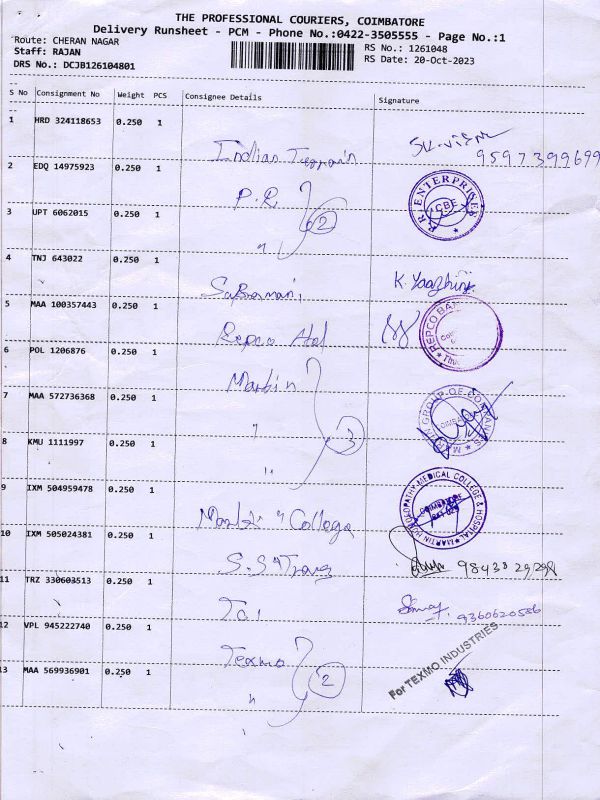 THE PROFESSIONAL COURIERS, COIMBATORE
Delivery Runsheet - PCM - Phone No.:0422-3505555 - Page No.:1
Route: CHERAN NAGAR RS No.: 1261048
Staff: RAJAN RS Date: 20-Oct-2023
DRS No.: DCJB126104801
S No Consignment No Weight PCS Consignee Details Signature
1 HRD 324118653 0.250 1 Indian
9597399699
2 EDQ 14975923 0.250 1 P.R R.R ENTERPRISES CBE
3 UPT 6062015 0.250 1 " 2
4 TNJ 643022 0.250 1 K. Yaazhini
5 MAA 100357443 0.250 1 Repco REPCO
6 POL 1206876 0.250 1 Martin
7 MAA 572736368 0.250 1 " MARTIN GROUP OF COMPANIES
8 KMU 1111997 0.250 1 " 3
9 IXM 504959478 0.250 1 Martin College MARTIN HOMOEOPATHY MEDICAL COLLEGE & HOSPITAL COIMBATORE
10 IXM 505024381 0.250 1 S.S 98433 29291
11 TRZ 330603513 0.250 1 9360620586
12 VPL 945222740 0.250 1 Texmo For TEXMO INDUSTRIES
13 MAA 569936901 0.250 1 " 2